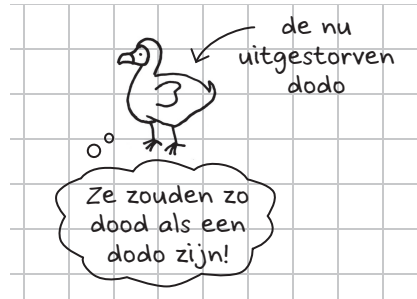 de nu
uitgestorven
dodo
Ze zouden zo
dood als een
dodo zijn!